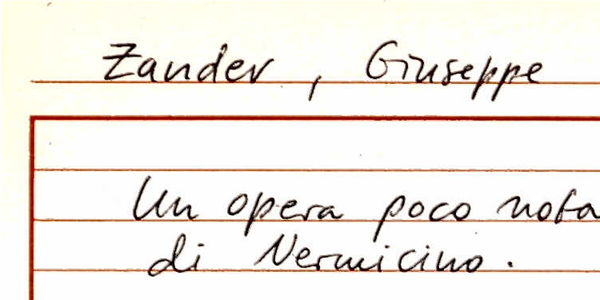 Zander, Giuseppe
Un opera poco nota
di Vermicino.